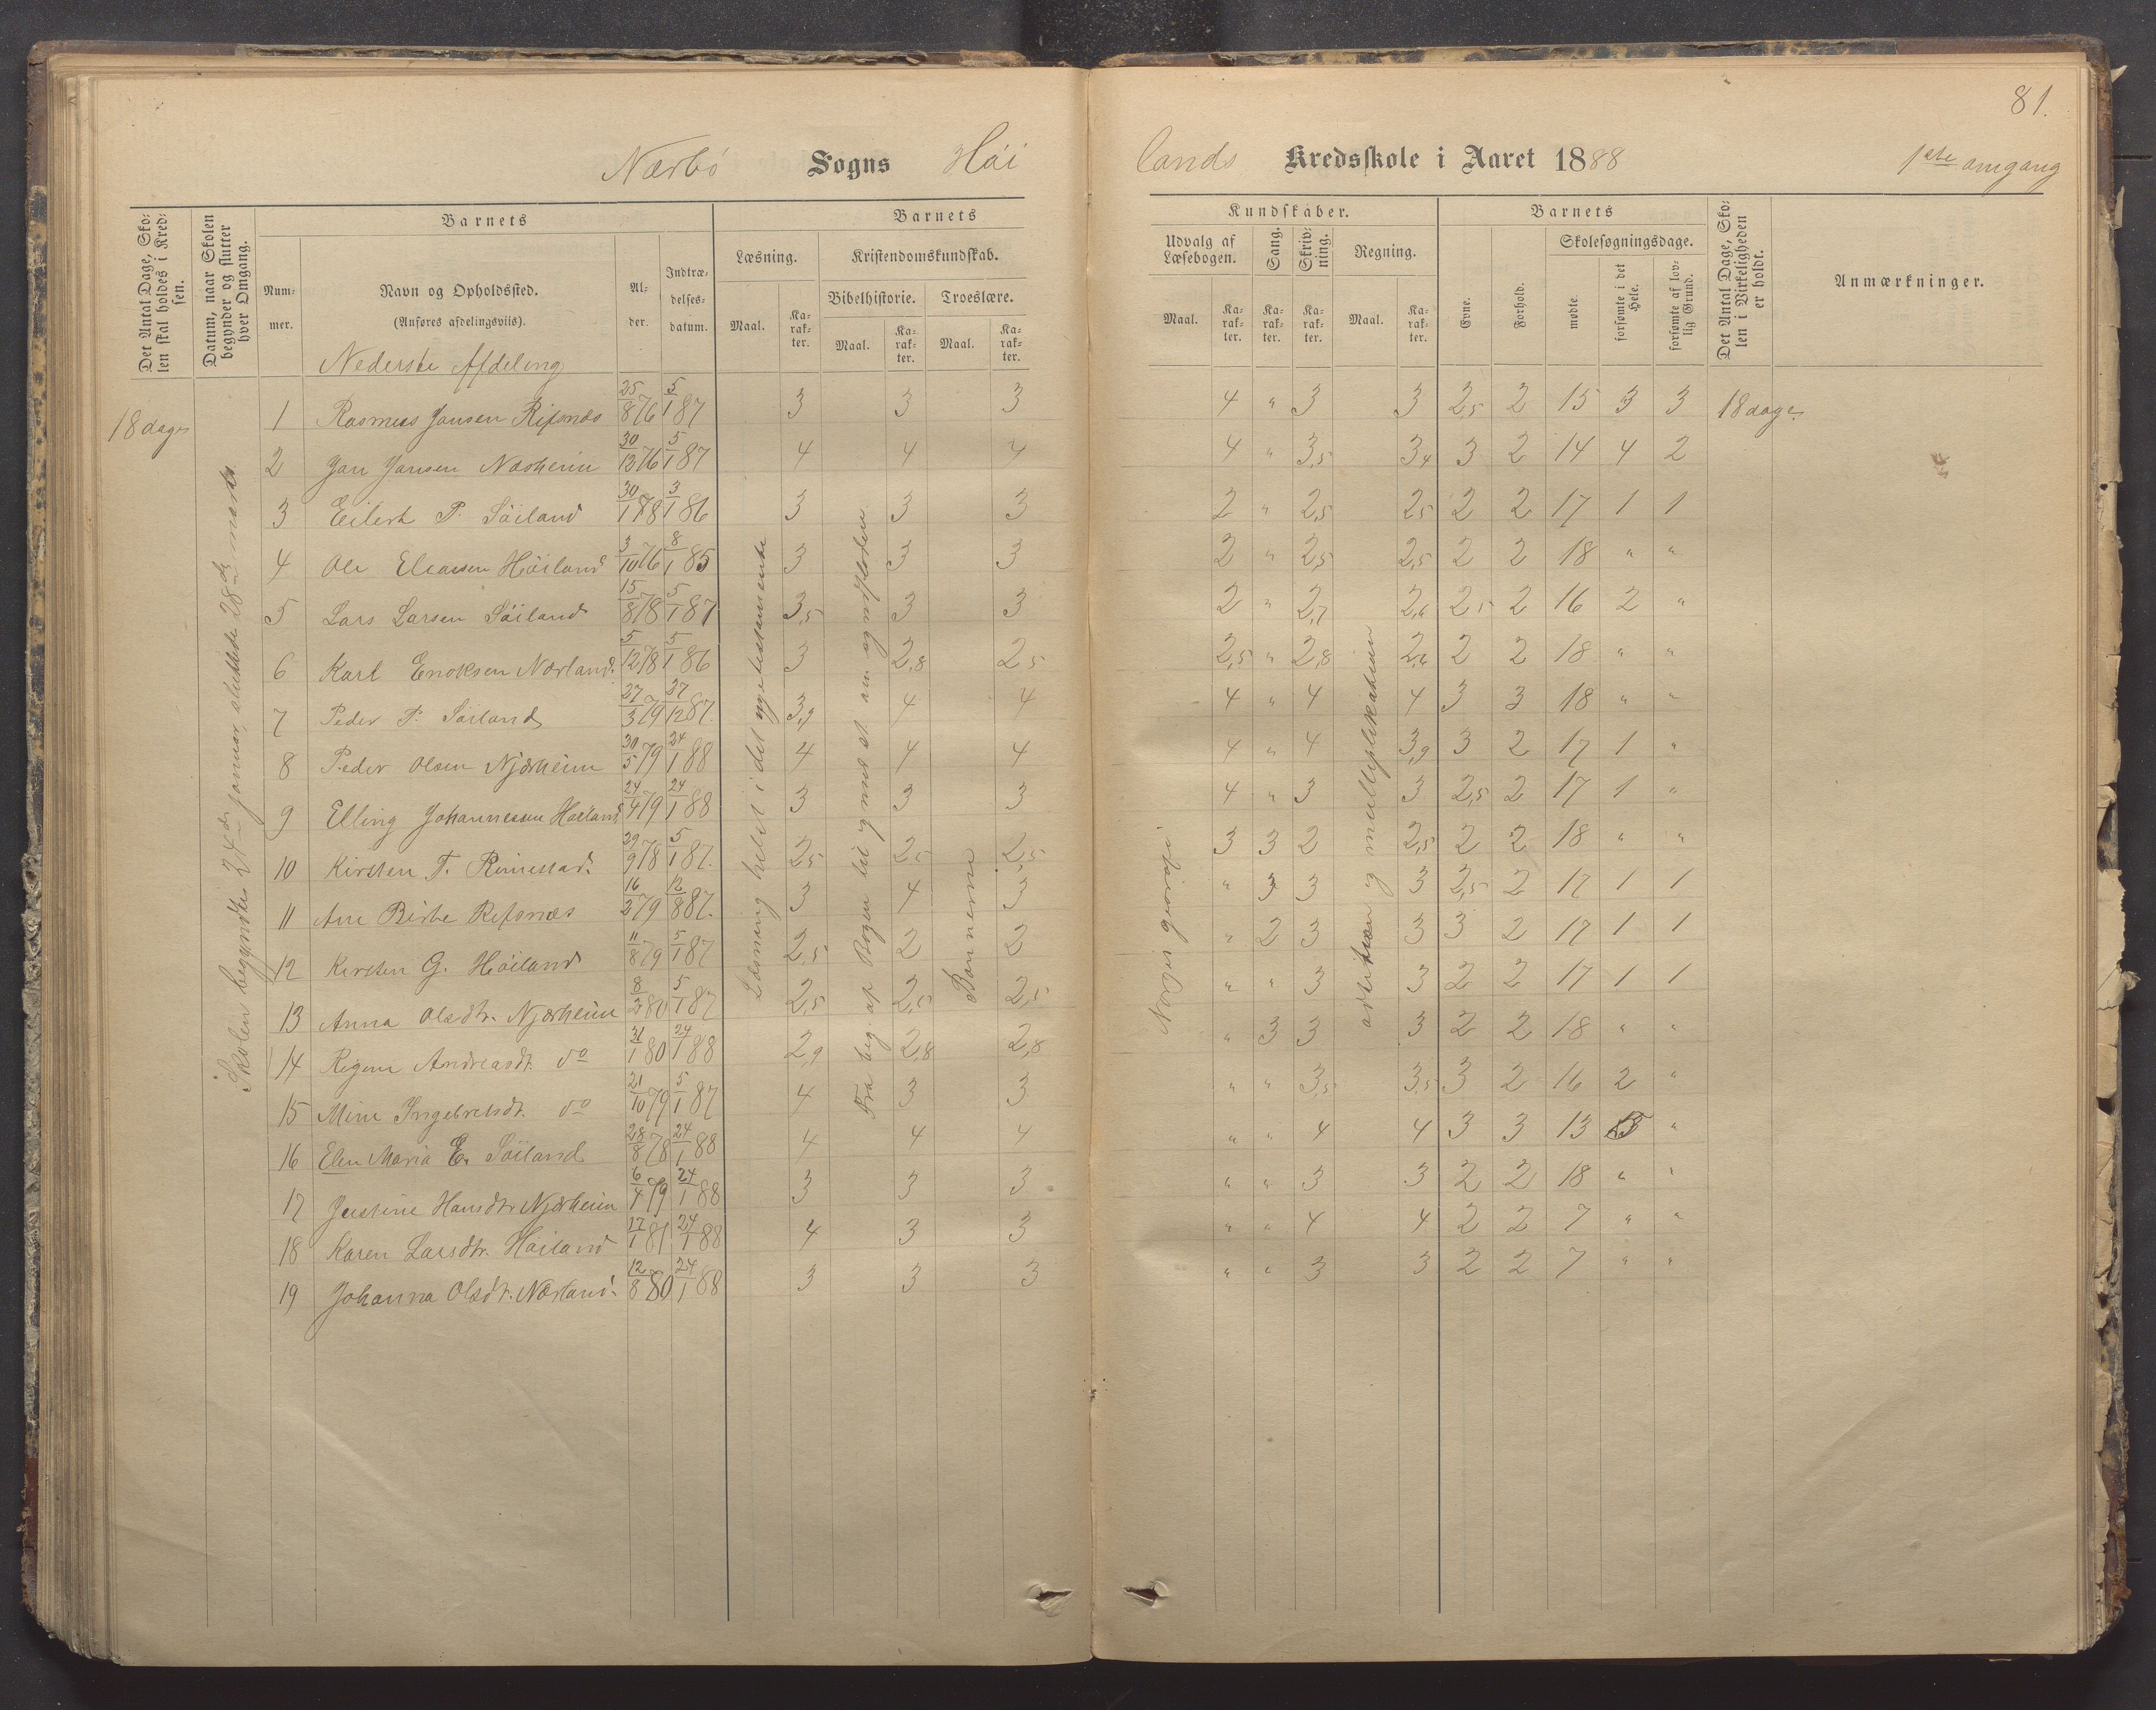 81.
Nærbø Sogns Høi
lands Kredsskole i Aaret 1888 1ste omgang
Det Antal Dage, Sko-
len skal holdes i Kred-
sen.
Datum, naar Skolen
begynder og slutter
hver Omgang.
Barnets
Num-
mer.
Navn og Opholdssted.
(Anføres afdelingsviis).
Al-
der.
Indtræ-
delses-
datum.
Barnets
Læsning.
Maal.
Ka-
rak-
ter.
Kristendomskundskab.
Bibelhistorie.
Troeslære.
Maal.
Ka-
rak-
ter.
Maal.
Ka-
rak-
ter.
Kundskaber.
Udvalg af
Læsebogen.
Maal.
Ka-
rak-
ter.
Sang.
Ka-
rak-
ter.
Skriv-
ning.
Ka-
rak-
ter.
Regning.
Maal.
Ka-
rak-
ter.
Barnets
Evne.
Forhold.
Skolesøgningsdage.
mødte.
forsømte i det
Hele.
forsømte af lov-
lig Grund.
Det Antal Dage, Sko-
len i Virkeligheden
er holdt.
Anmærkninger.
Nederste Afdeling
18 dage
Skolen begyndte 24de januar, sluttede 28de marts
1 Rasmus Jansen Refsnæs 25/8 76 5/1 87 3 3 3 4 " 3 3 2,5 2 15 3 3 18 dage
2 Jan Jansen Næsheim 30/12 76 5/1 87 4 4 4 4 " 3,5 3,4 3 2 14 4 2
3 Eilert P. Søiland 30/1 78 3/1 86 3 3 3 2 " 2,5 2,5 2 2 17 1 1
4 Ole Eleasen Høiland 3/10 76 8/1 85 3 3 3 2 " 2,5 2,5 2 2 18 " "
5 Lars Larsen Søiland 15/8 78 5/1 87 3,5 3 3 2 " 2,7 2,6 2,5 2 16 2 "
6 Karl Enoksen Nærland 5/12 78 5/1 86 3 2,8 2,5 2,5 " 2,8 2,6 2 2 18 " "
7 Peder P. Søiland 27/3 79 27/12 87. 3,9 4 4 4 " 4 4 3 3 18 " "
8 Peder Olsen Njærheim 30/5 79 24/1 88 4 4 4 4 " 4 3,9 3 2 17 1 "
9 Elling Johannessen Høiland 24/4 79 24/1 88 3 3 3 4 " 3 3 2,5 2 17 1 "
10 Kirsten T. Rimestad. 29/9 78 5/1 87. 2,5 2,5 2,5 3 3 2 2,5 2 2 18 " "
11 Ane Birte Refsnæs 16/3 79 12/8 87. 3 4 3 " 3 3 3 2,5 2 17 1 1
12 Kirsten G. Høiland 11/8 79 5/1 87 2,5 2 2 " 2 3 3 3 2 17 1 1
13 Anna Olsdtr. Njærheim 8/3 80 5/1 87 2,5 2,5 2,5 " " 3 3 2 2 17 1 1
14 Regine Andreasdt. do 31/1 80 24/1 88 2,9 2,8 2,8 " 3 3 3 2 2 18 " "
15 Mine Ingebretsdt. do 21/10 79 5/1 87 4 3 3 " " 3,5 3,5 3 2 16 2 "
16 Elen Maria E. Søiland 28/8 78 24/1 88 4 4 4 " " 4 4 3 3 13 5 "
17 Justine Hansdtr Njærheim 6/4 79 24/1 88 3 3 3 " " 3 3 2 2 18 " "
18 Karen Larsdtr. Høiland 17/1 81 24/1 88 4 3 3 " " 4 4 2 2 7 " "
19 Johanna Olsdt. Nærland. 12/8 80 24/1 88 3 3 3 " " 3 3 2 2 7 " "
Læsning helst i det nye testamente
Fra beg. af Bogen til
Bønnerne
adition og multiplikation